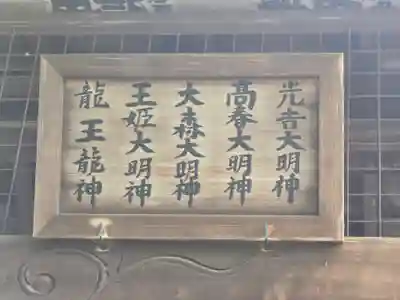 光吉大明神
高春大明神
大森大明神
玉姫大明神
龍王龍神